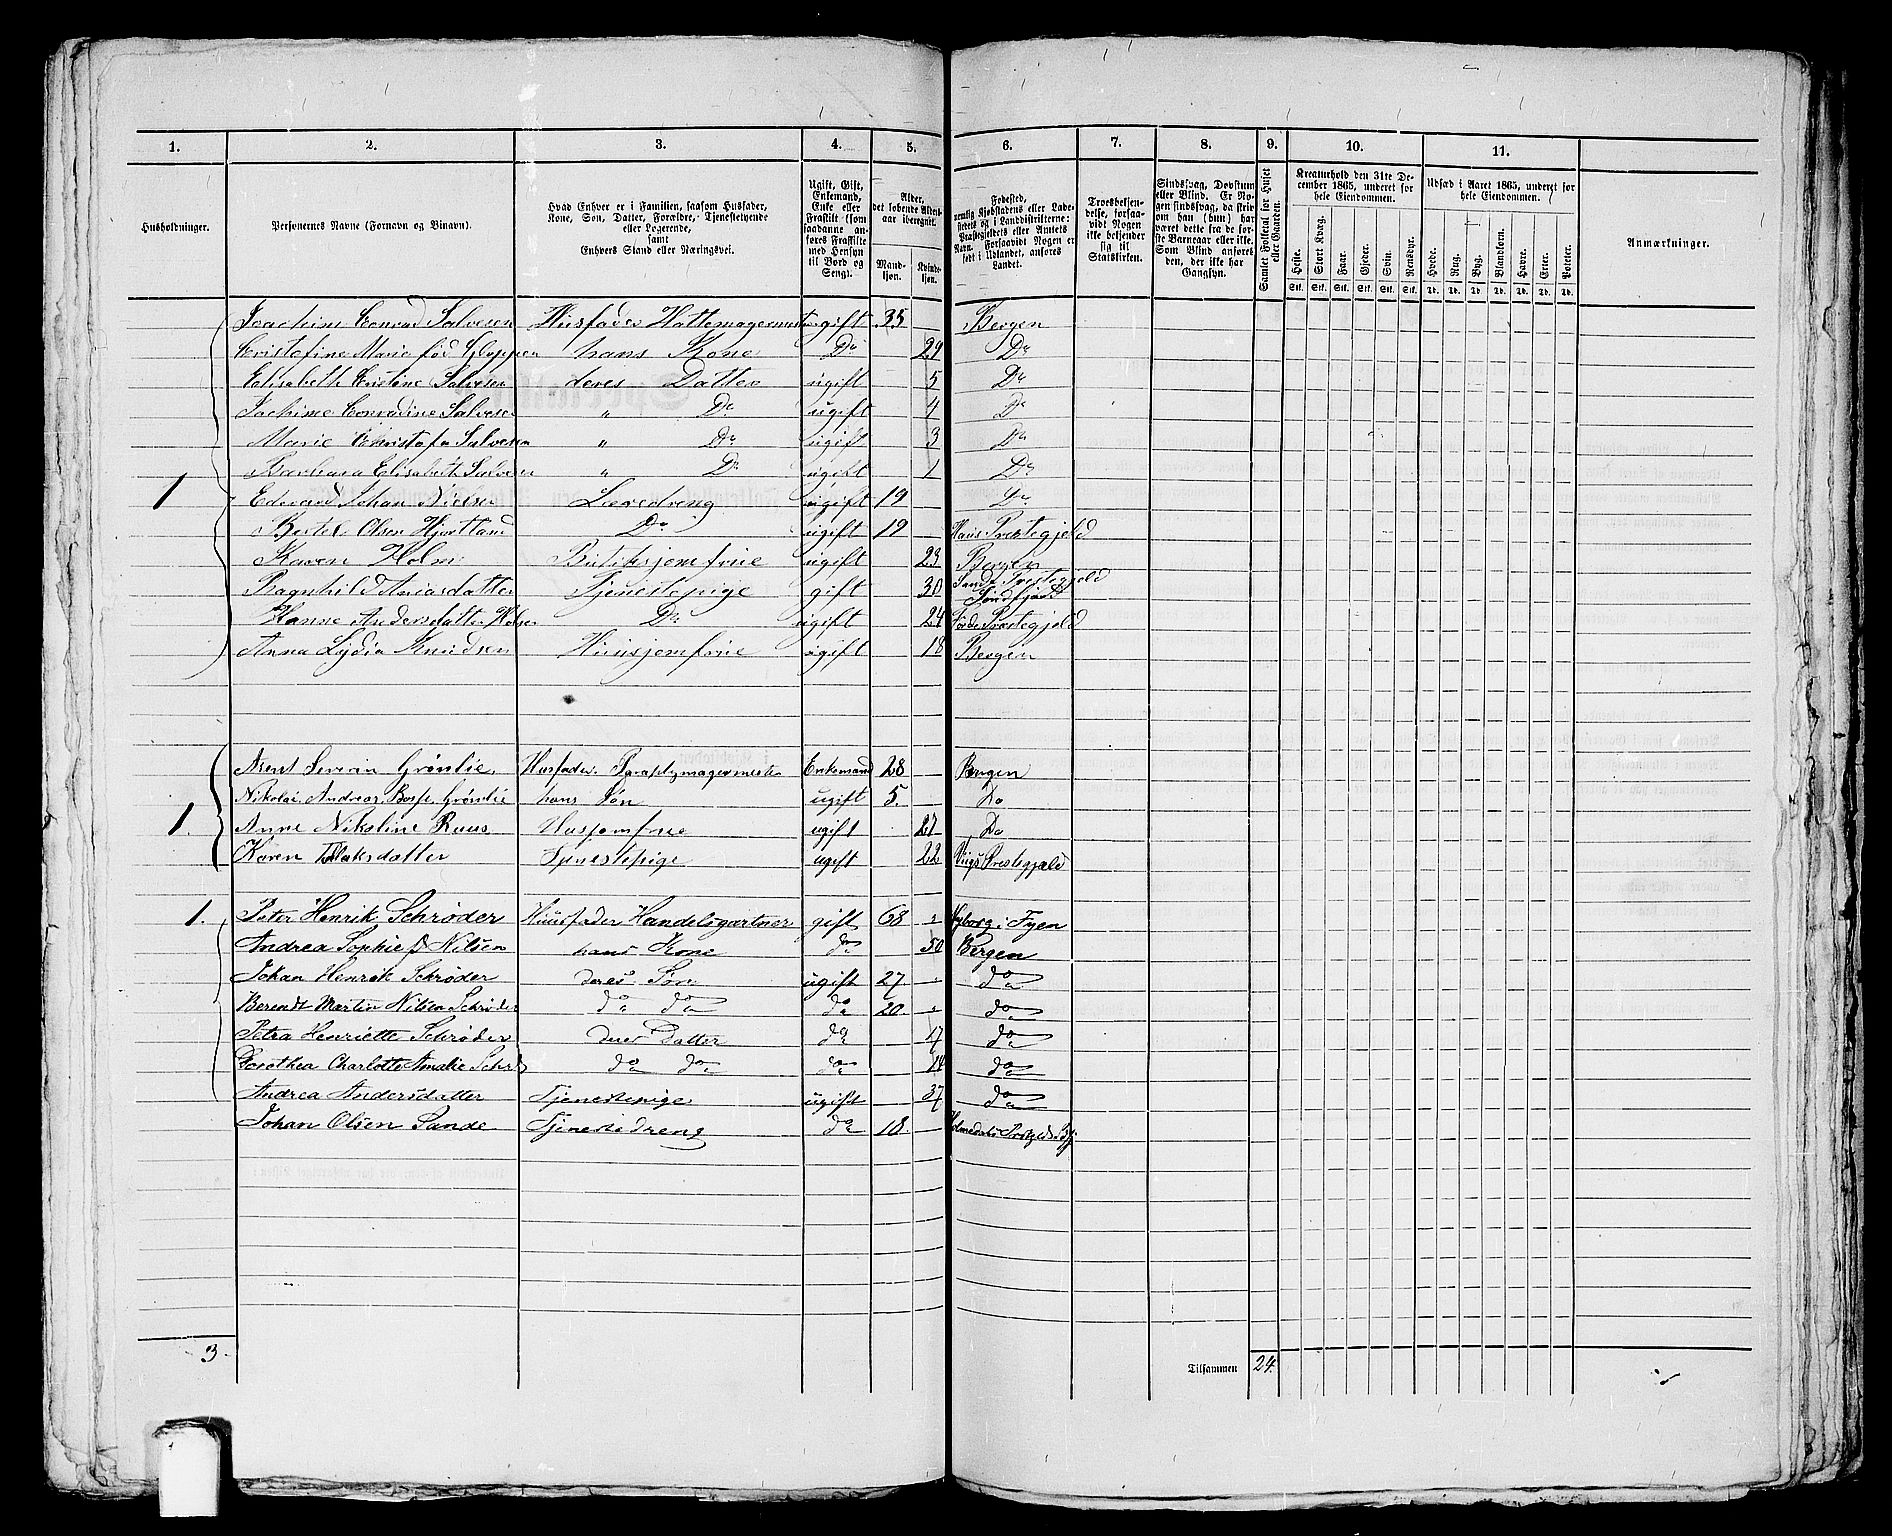 1. 2. 3. 4. 5. 6. 7. 8. 9. 10. 11.
Husholdninger.
Personernes Navne (Fornavn og Binavn).
Hvad Enhver er i Familien, saasom Husfader,
Kone, Søn, Datter, Forældre, Tjenestetyende
eller Logerende,
samt
Enhvers Stand eller Næringsvei.
Ugift, Gift,
Enkemand,
Enke eller
Fraskilt (som
saadanne an-
føres Fraskilte
med Hensyn
til Bord og
Seng).
Alder,
det løbende Alders-
aar iberegnet.
Mand-
kjøn.
Kvinde-
kjøn.
Fødested,
nemlig Kjøbstadens eller Lade-
stedets og i Landdistrikterne:
Præstegjeldets eller Amtets
Navn. Forsaavidt Nogen er
født i Udlandet, anføres
Landet.
Troesbekjen-
delse, forsaa-
vidt Nogen
ikke bekjender
sig til
Statskirken.
Sindssvag, Døvstum
eller Blind. Er No-
gen sindssvag, da skriv
om han (hun) har
været dette fra de før-
ste Barneaar eller ikke.
Som Blind ansees
den, der ikke har
Gangsyn.
Samlet Folketal for Huset
eller Gaarden.
Kreaturhold den 31te De-
cember 1865, underet for
hele Eiendommen.
Heste. Stort Kvæg. Faar. Gjeder. Svin. Rensdyr.
Stk. Stk. Stk. Stk. Stk. Stk.
Udsæd i Aaret 1865, underet for
hele Eiendommen.
Hvede. Rug. Byg. Blandkorn. Havre. Erter. Poteter.
Td. Td. Td. Td. Td. Td. Td.
Anmærkninger.
Joachim Conrad Salvesen Husfader Hattemagermester gift 35 Bergen
Cristofine Marie fød Gloppen hans Kone Do 29 Do
Elisabeth Cristine Salvesen deres Datter ugift 5 Do
Jachime Conradine Salvesen " Do ugift 4 Do
Marie Christofa Salvesen " Do ugift 3 Do
Barbara Elisabeth Salvesen " Do ugift 1 Do
1 Edevard Johan Nielsen Læredreng ugift 19 Do
Bertel Olsen Hjortland Do ugift 19 Haus Præstegjeld
Karen Holm Butiksjomfrue ugift 23 Bergen
Ragnhild Aniasdatter Tjenestepige gift 30 Præstegjeld
Søndfjord
Hanne Andersdatter Do ugift 24 Førde Præstegjeld
Anna Lydia Knudsen Huusjomfrue ugift 18 Bergen
Arent Severin Grønlie Husfader. Paraplymagermester Enkemand 28 Bergen
Nikolai Andreas Grønlie hans Søn ugift 5. Do
1. Anne Nikoline Ruus Husjomfrue ugift 27 Do
Karen Tollaksdatter Tjenestepige ugift 22 Viigs Præstegjæld
1. Peter Henrik Schrøder Huusfader Handelsgartner gift 68 Nyborg i Fyen
Andrea Sophie f. Nilsen hans Kone do 50 Bergen
Johan Henrik Schrøder deres Søn ugift 27. do
Berendt Martin Nilsen Schrøder do do do 20. do
Petra Henriette Schrøder deres Datter do 17 do
Dorothea Charlotte Amalie Schrd do do do 14 do
Andrea Andersdatter Tjenestepige ugift 37 do
Johan Olsen Sande Tjenestedreng do 18.
3. Tilsammen 24.